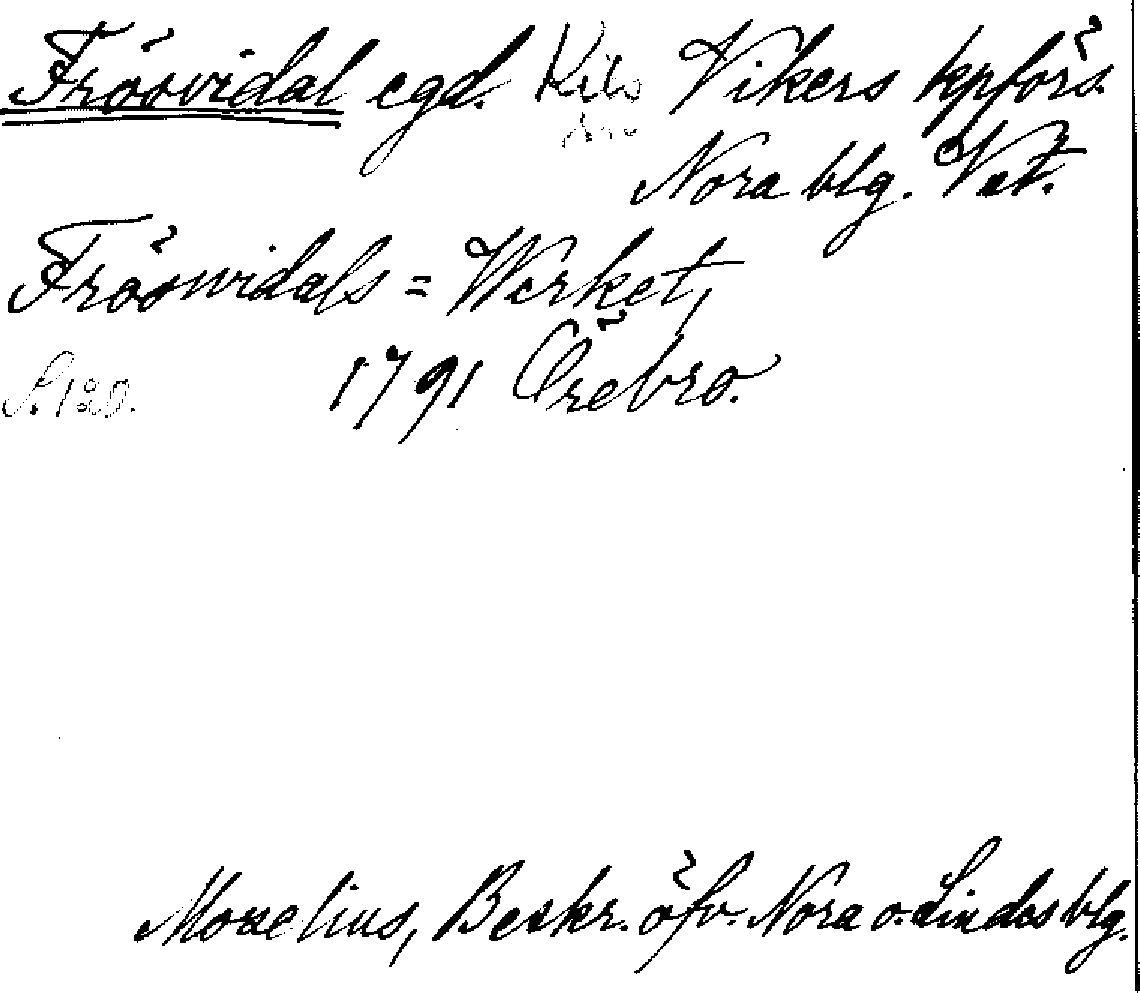 Frösvidal egd. Kils Vikers kpförs.
Nora blg. Vst.
Frösvidals = Werket,
S. 120. 1791 Örebro.
Moxelius, Beskr. öfv. Nora o. Lindes blg.